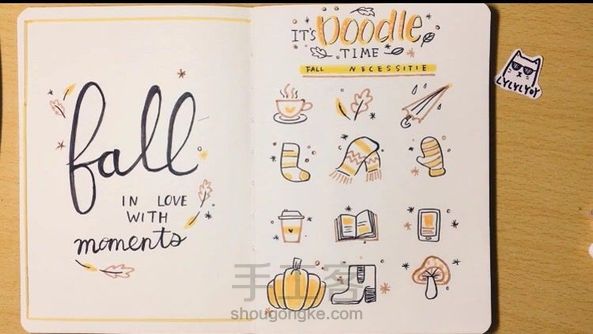 fall
IN LOVE
WITH
moments
IT'S Doodle
TIME
FALL NECESSITIE
LYLYLYOY
手工客
shougongke.com